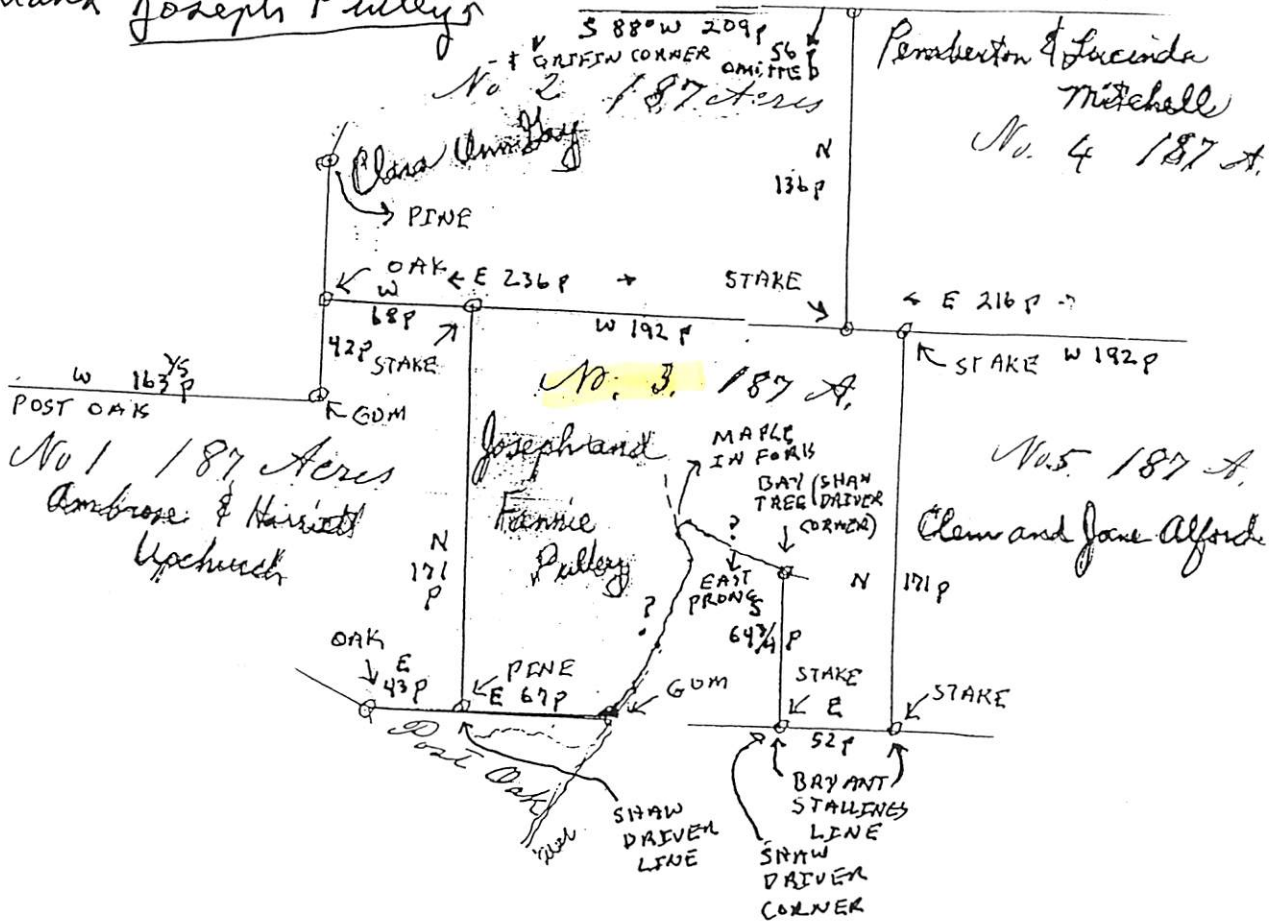 Joseph Pulleys
S 88° W 209 P
GRIFFIN CORNER
56 P
OMITTED
No 2 187 Acres
Clara Ann Gay
PINE
Pemberton & Lucinda
Mitchell
No. 4 187 A.
N
136 P
OAK
← E 236 P →
STAKE
← E 216 P →
W
68 P
W 192 P
42 P
STAKE
STAKE W 192 P
W 163 1/5 P
POST OAK
GUM
No. 3. 187 A.
No 1 187 Acres
Ambrose & Harriett
Upchurch
Joseph and
Fannie
Pullery
MAPLE
IN FORK
BAY
TREE
(SHAW
DRIVER
CORNER)
No. 5 187 A.
Clem and Jane Alford
N
171
P
?
EAST
PRONG
S
64 3/4 P
N 171 P
?
OAK
E
43 P
PINE
E 67 P
GUM
STAKE
E
52 P
STAKE
Post Oak
SHAW
DRIVER
LINE
BRYANT
STALLINGS
LINE
SHAW
DRIVER
CORNER